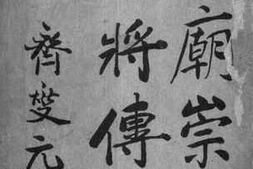 廟崇
將傳
齊燮元